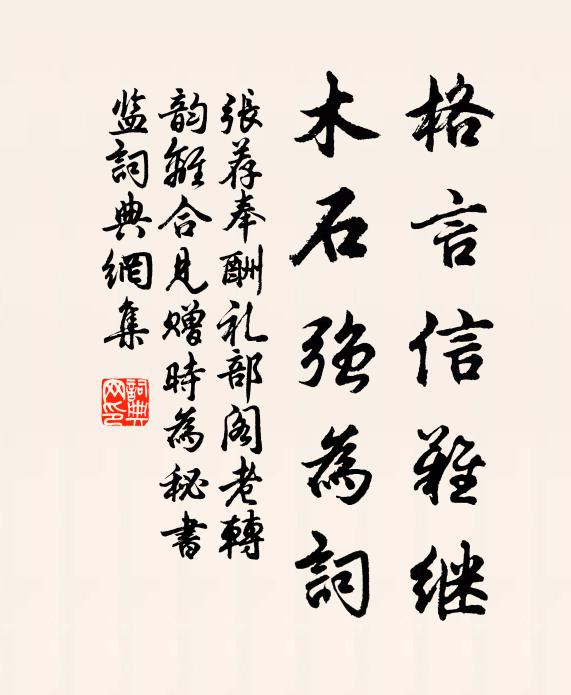 格言信难继
木石強為詞
張荐奉酬礼部阁老轉
韵離合見赠時為秘書
监詞典網集
詞典网印